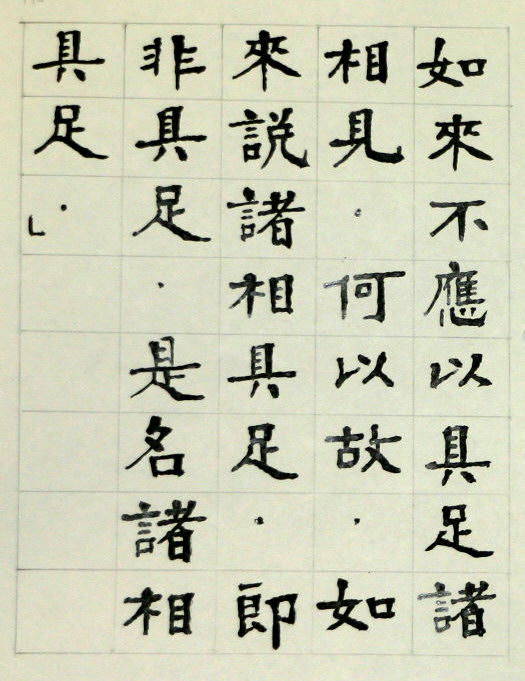 如來不應以具足諸
相見。何以故.如
來説諸相具足.即
非具足.是名諸相
具足.」